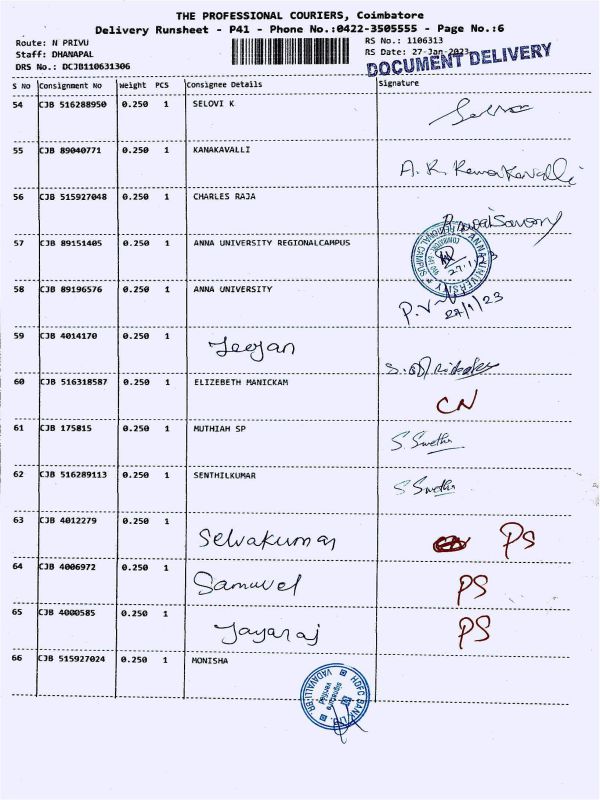 THE PROFESSIONAL COURIERS, Coimbatore
Delivery Runsheet - P41 - Phone No.:0422-3505555 - Page No.:6
Route: N PRIVU RS No.: 1106313
Staff: DHANAPAL RS Date: 27-Jan-2023
DRS No.: DCJB110631306 DOCUMENT DELIVERY
S No Consignment No Weight PCS Consignee Details Signature
54 CJB 516288950 0.250 1 SELOVI K
55 CJB 89040771 0.250 1 KANAKAVALLI
A. R. Kanakavalli
56 CJB 515927048 0.250 1 CHARLES RAJA
57 CJB 89151405 0.250 1 ANNA UNIVERSITY REGIONALCAMPUS
ANNA UNIVERSITY REGIONAL CAMPUS
58 CJB 89196576 0.250 1 ANNA UNIVERSITY
27/1/23
59 CJB 4014170 0.250 1 Jeejan
60 CJB 516318587 0.250 1 ELIZEBETH MANICKAM
CN
61 CJB 175815 0.250 1 MUTHIAH SP
S. Swetha
62 CJB 516289113 0.250 1 SENTHILKUMAR
S Swetha
63 CJB 4012279 0.250 1 Selvakumar PS
64 CJB 4006972 0.250 1 Samuvel PS
65 CJB 4000585 0.250 1 Jayaraj PS
66 CJB 515927024 0.250 1 MONISHA
HDFC BANK LTD
VADAVALLI-BR